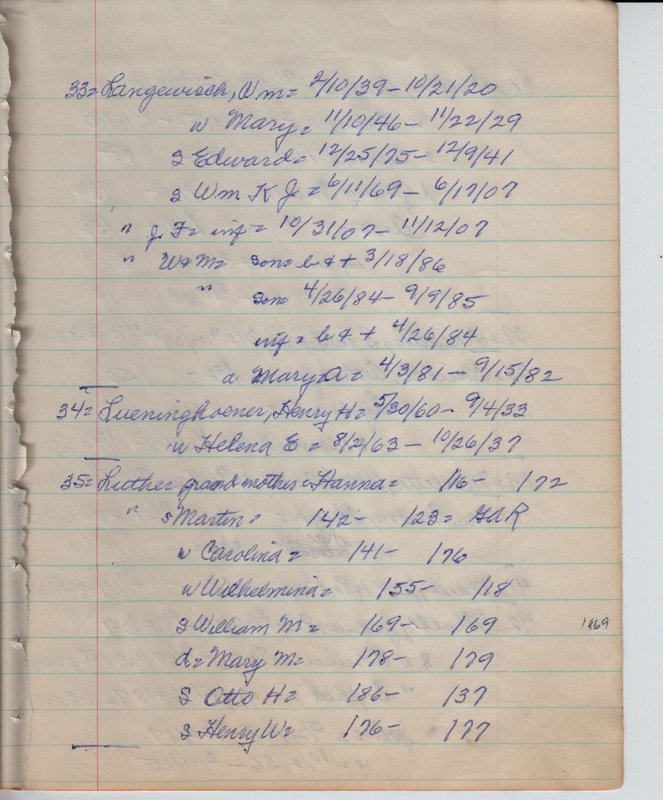 33= Langewisch, Wm= 2/10/39- 10/21/20
w Mary= 11/10/46- 11/22/29
S Edward= 12/25/75- 12/9/41
S Wm K J= 6/11/69- 6/17/07
" J. F= inf= 10/31/07- 11/12/07
" W&M= son= b & + 3/18/86
" son 4/26/84- 9/9/85
inf= b & + 4/26/84
d Mary A= 4/3/81- 9/15/82
34= Lueninghoener, Henry H= 5/30/60- 9/4/33
w Helena E= 8/2/63- 10/26/37
35= Luther grandmother= Hanna= /16- /72
" s Martin= /42- /23= GAR
w Carolina= /41- /76
w Wilhelmina= /55- /18
S William M= /69- /69 1869
d= Mary M= /78- /79
S Otto H= /86- /37
S Henry W= /76- /77